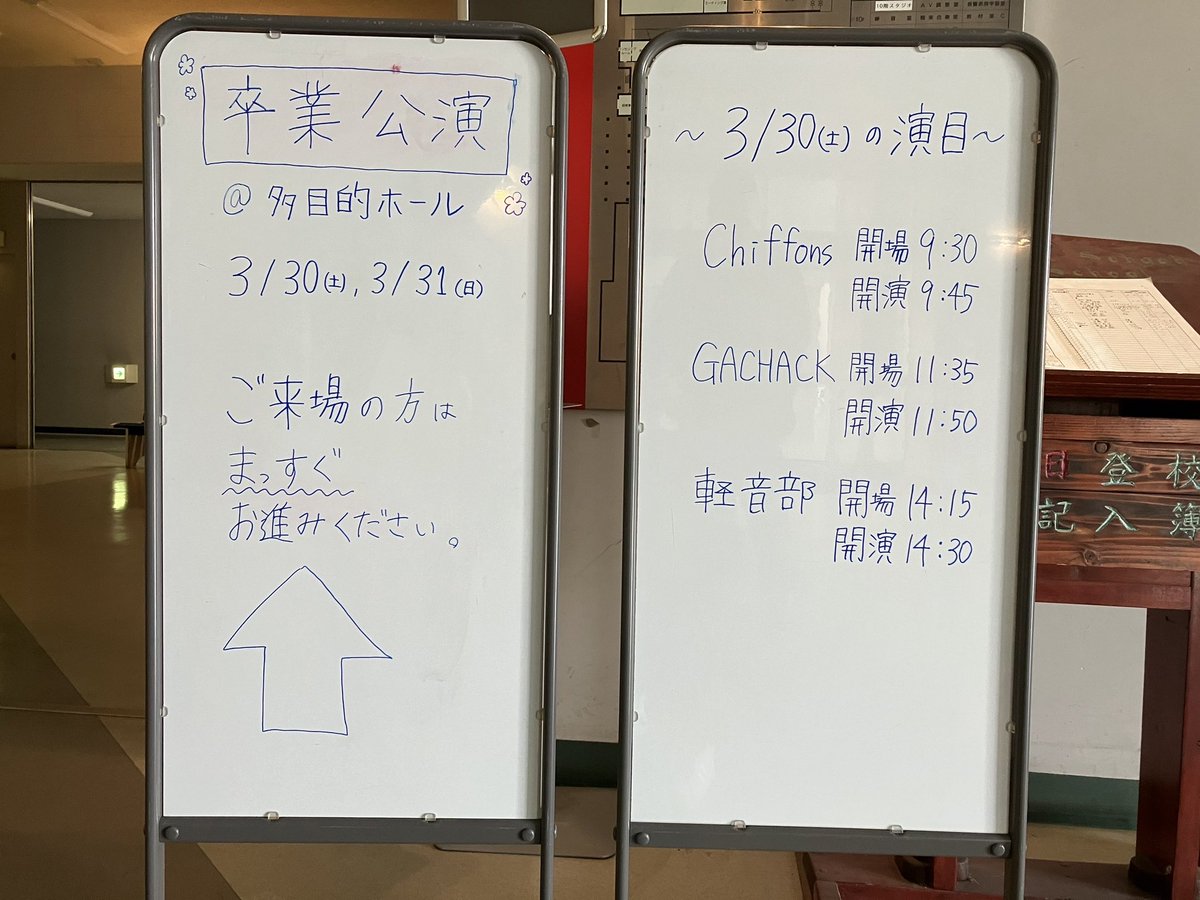 卒業公演
@ 多目的ホール
3/30(土), 3/31(日)
ご来場の方は
まっすぐ
お進みください。
～ 3/30(土)の演目～
Chiffons 開場 9:30
開演 9:45
GACHACK 開場 11:35
開演 11:50
軽音部 開場 14:15
開演 14:30
10階スタジオ
日登校
記入簿